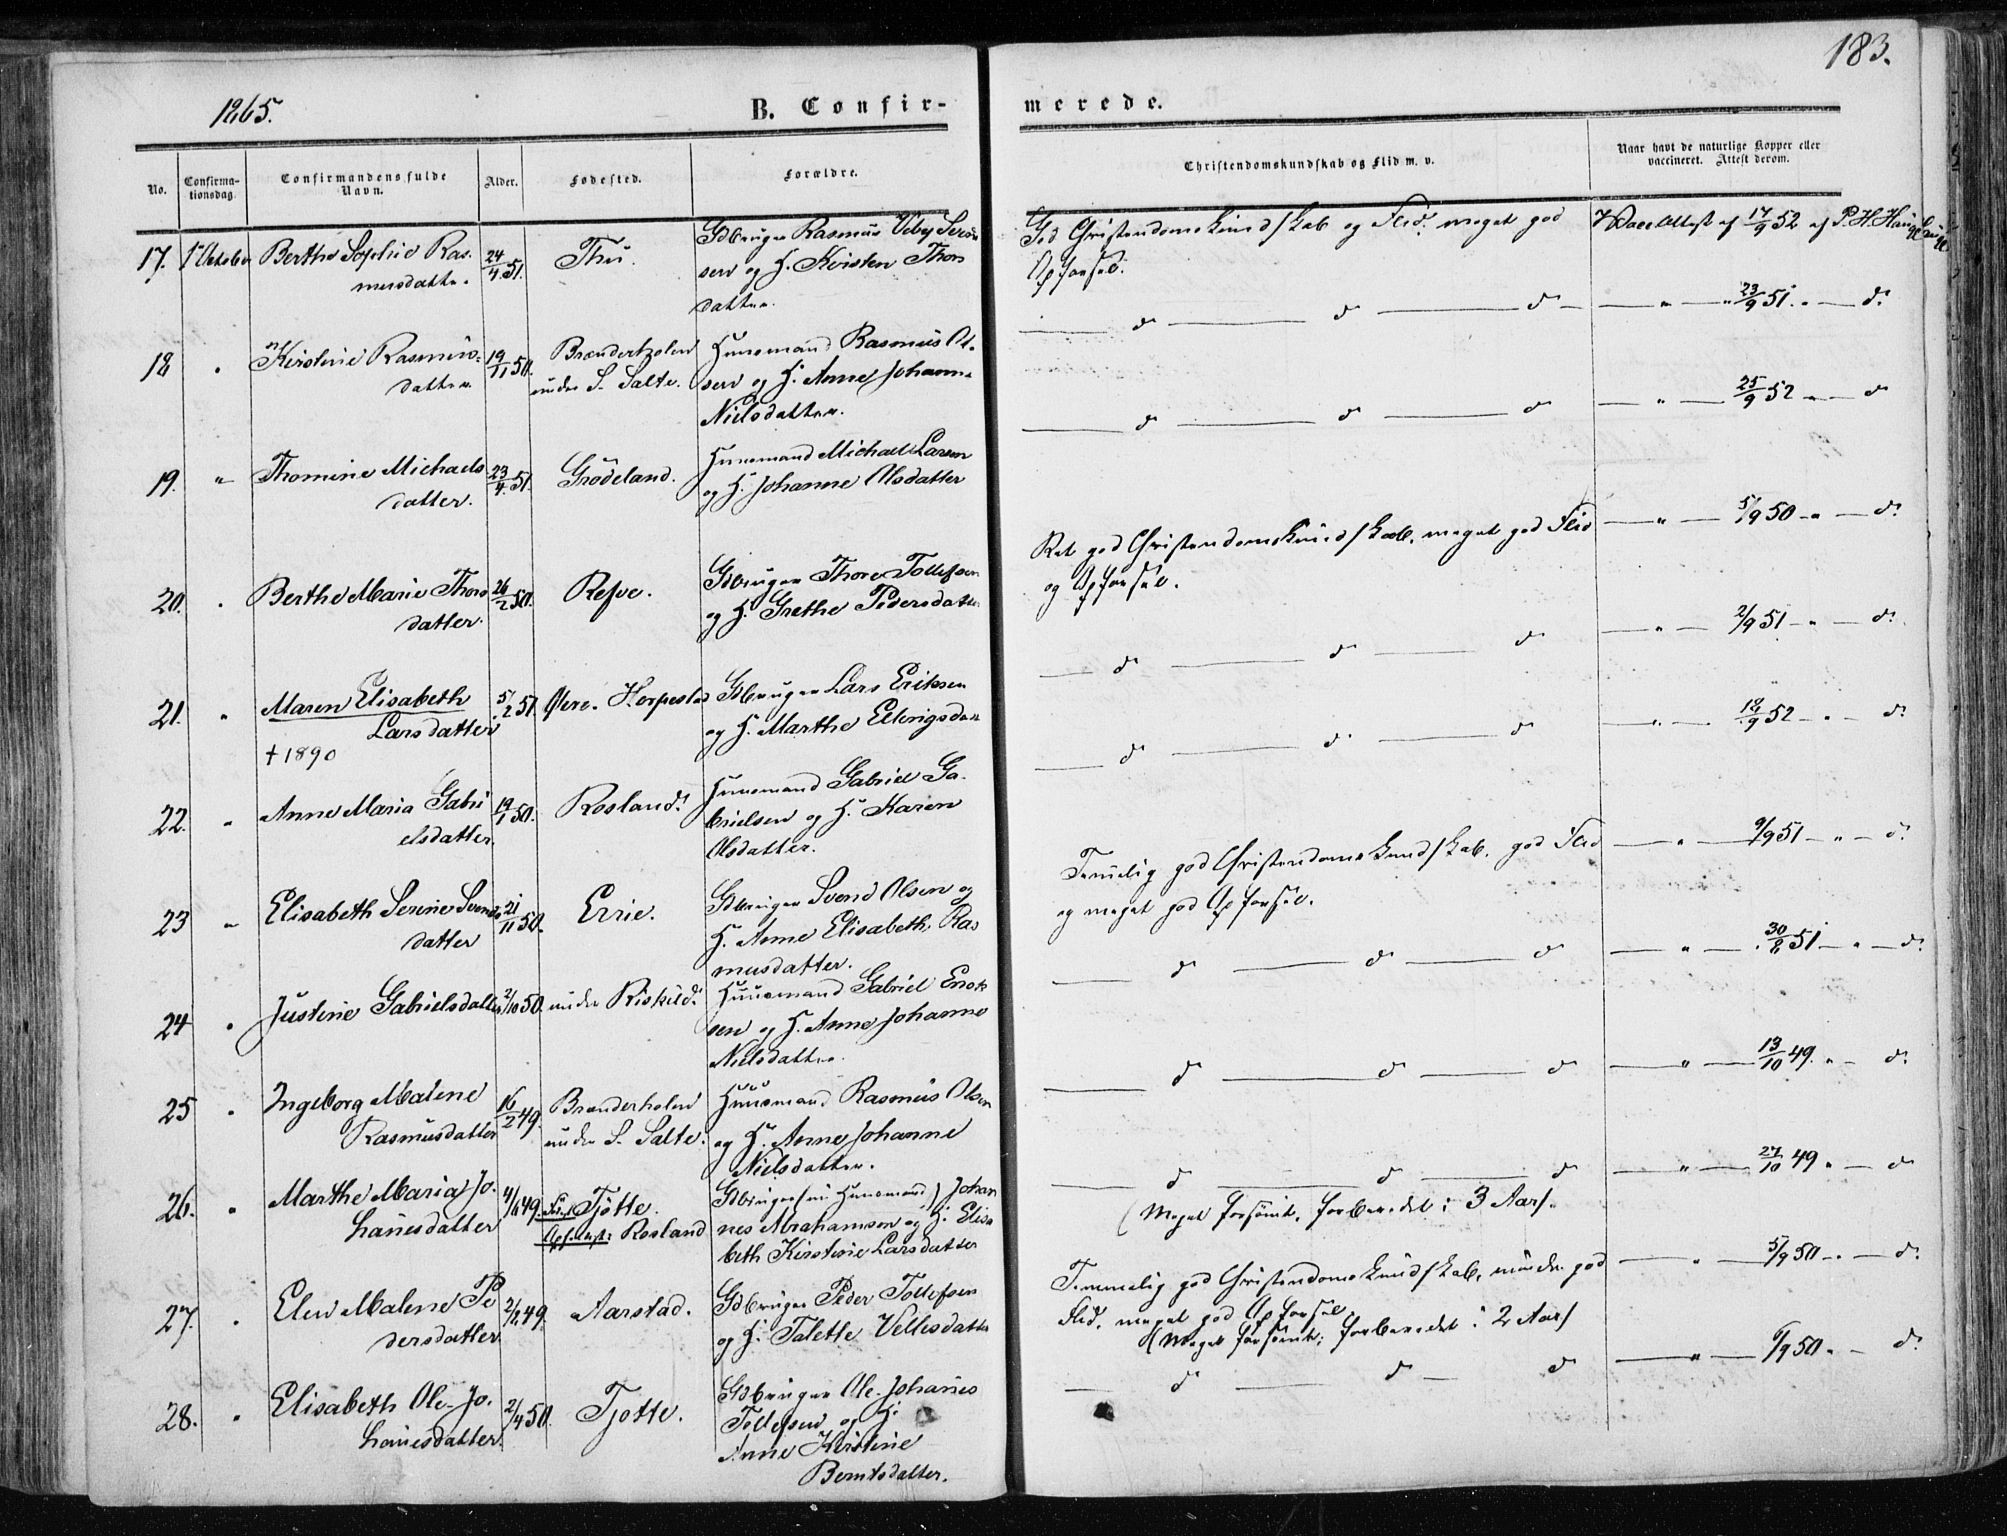 183.
1865.
B. Confir-
merede.
No.
Confirma-
tionsdag.
Confirmandens fulde
Navn.
Alder.
Fødested.
Forældre.
Christendomskundskab og Flid m. v.
Naar havt de naturlige Kopper eller
vaccineret. Attest derom.
17. 1 October Berthe Sophie Ras-
musdatter. 24/4 51. Thu. Gdbruger Rasmus Veby Seren
sen og H. Kirsten Thors
datter.
God Christendomskundskab og Flid. meget god
Opførsel.
Vacc. Attest af 17/9 52 af P. H. Hauge
18 " Kirstine Rasmus-
datter 19/11 50. Brænderholen
under S. Salte. Huusmand Rasmus Ol-
sen og H. Anne Johanne
Nielsdatter.
d° d° d° " 23/9 51. " d°
19. " Thomine Michaels
datter. 23/4 51. Grødeland. Huusmand Michael Larsen
og H. Johanne Olsdatter
d° d° d° " 25/9 52 " d°
20. " Berthe Marie Thors
datter. 26/2 50. Refve. Gdbruger Thore Tollefsen
og H. Grethe Pedersdatter
Ret god Christendomskundskab, meget god Flid
og Opførsel.
" 5/9 50 " d°
21. " Maren Elisabeth
Larsdatter
† 1890
5/2 51. Øvre Horpestad Gdbruger Lars Eriksen
og H. Marthe Ellingsdatter
d° d° d° " 2/9 51 " d°
22. " Anne Maria Gabri
elsdatter 19/1 50. Rosland. Huusmand Gabriel Ga-
brielsen og H. Karen
Olsdatter.
d° d° d° " 18/9 52 " d°
23 " Elisabeth Serine Svends
datter 21/11 50. Errie. Gdbruger Svend Olsen og
H. Anne Elisabeth Ras
musdatter.
Temmelig god Christendomskundskab, god Flid
og meget god Opførsel.
" 9/9 51 " d°
24 " Justine Gabrielsdatter 2/10 50. under Riskild. Huusmand Gabriel Enok
sen og H. Anne Johanne
Nielsdatter.
d° d° d° " 30/8 51 " d°
25 " Ingeborg Malene
Rasmusdatter 16/2 49. Brænderholen
under S. Salte. Huusmand Rasmus Olsen
og H. Anne Johanne
Nielsdatter.
d° d° d° " 13/10 49. " d°
26. " Marthe Maria Jo-
hanesdatter 4/6 49. Tjøtte.
Rosland Gdbruger Huusmand) Johan
nes Abrahamsen og H. Elisa
beth Kirstine Larsdatter
d° d° d° " 27/10 49 " d°
(Meget forsømt, forberedt i 3 Aar).
27. " Elen Malene Pe
dersdatter 2/2 49. Aarstad. Gdbruger Peder Tollefsen
og H. Talette Vellesdatter
Temmelig god Christendomskundskab, mindre god
Flid, meget god Opførsel.
(Meget forsømt; forberedt i 2 Aar)
" 5/9 50 " d°
28. " Elisabeth Ole-Jo-
hanesdatter. 2/4 50. Tjøtte. Gdbruger Ole-Johanes
Tollefsen og H.
Anne Kirstine
Berntsdatter.
d° d° d° " 6/9 50 " d°